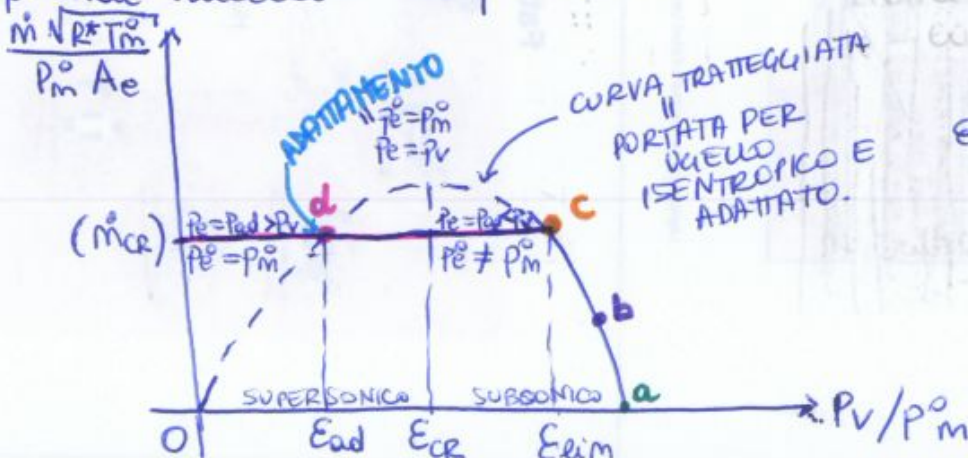 ṁ √R* T°m
P°m Ae
ADATTAMENTO
P°e = P°m
Pe = Pv
CURVA TRATTEGGIATA
"
PORTATA PER
UGELLO
ISENTROPICO E
ADATTATO.
d
c
(ṁCR)
Pe = Pad > Pv
P°e = P°m
P°e ≠ P°m
b
SUPERSONICO
SUBSONICO
a
Pv/P°m
0
εad
εCR
εlim